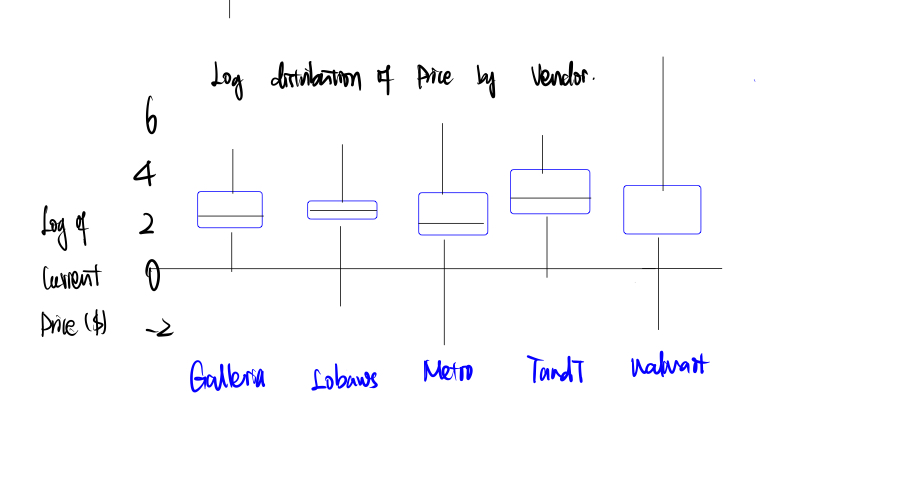 Log distribution of Price by Vendor.
6
4
Log of 2
Current 0
Price ($) -2
Galleria Lobaws Metro TandT Walmart